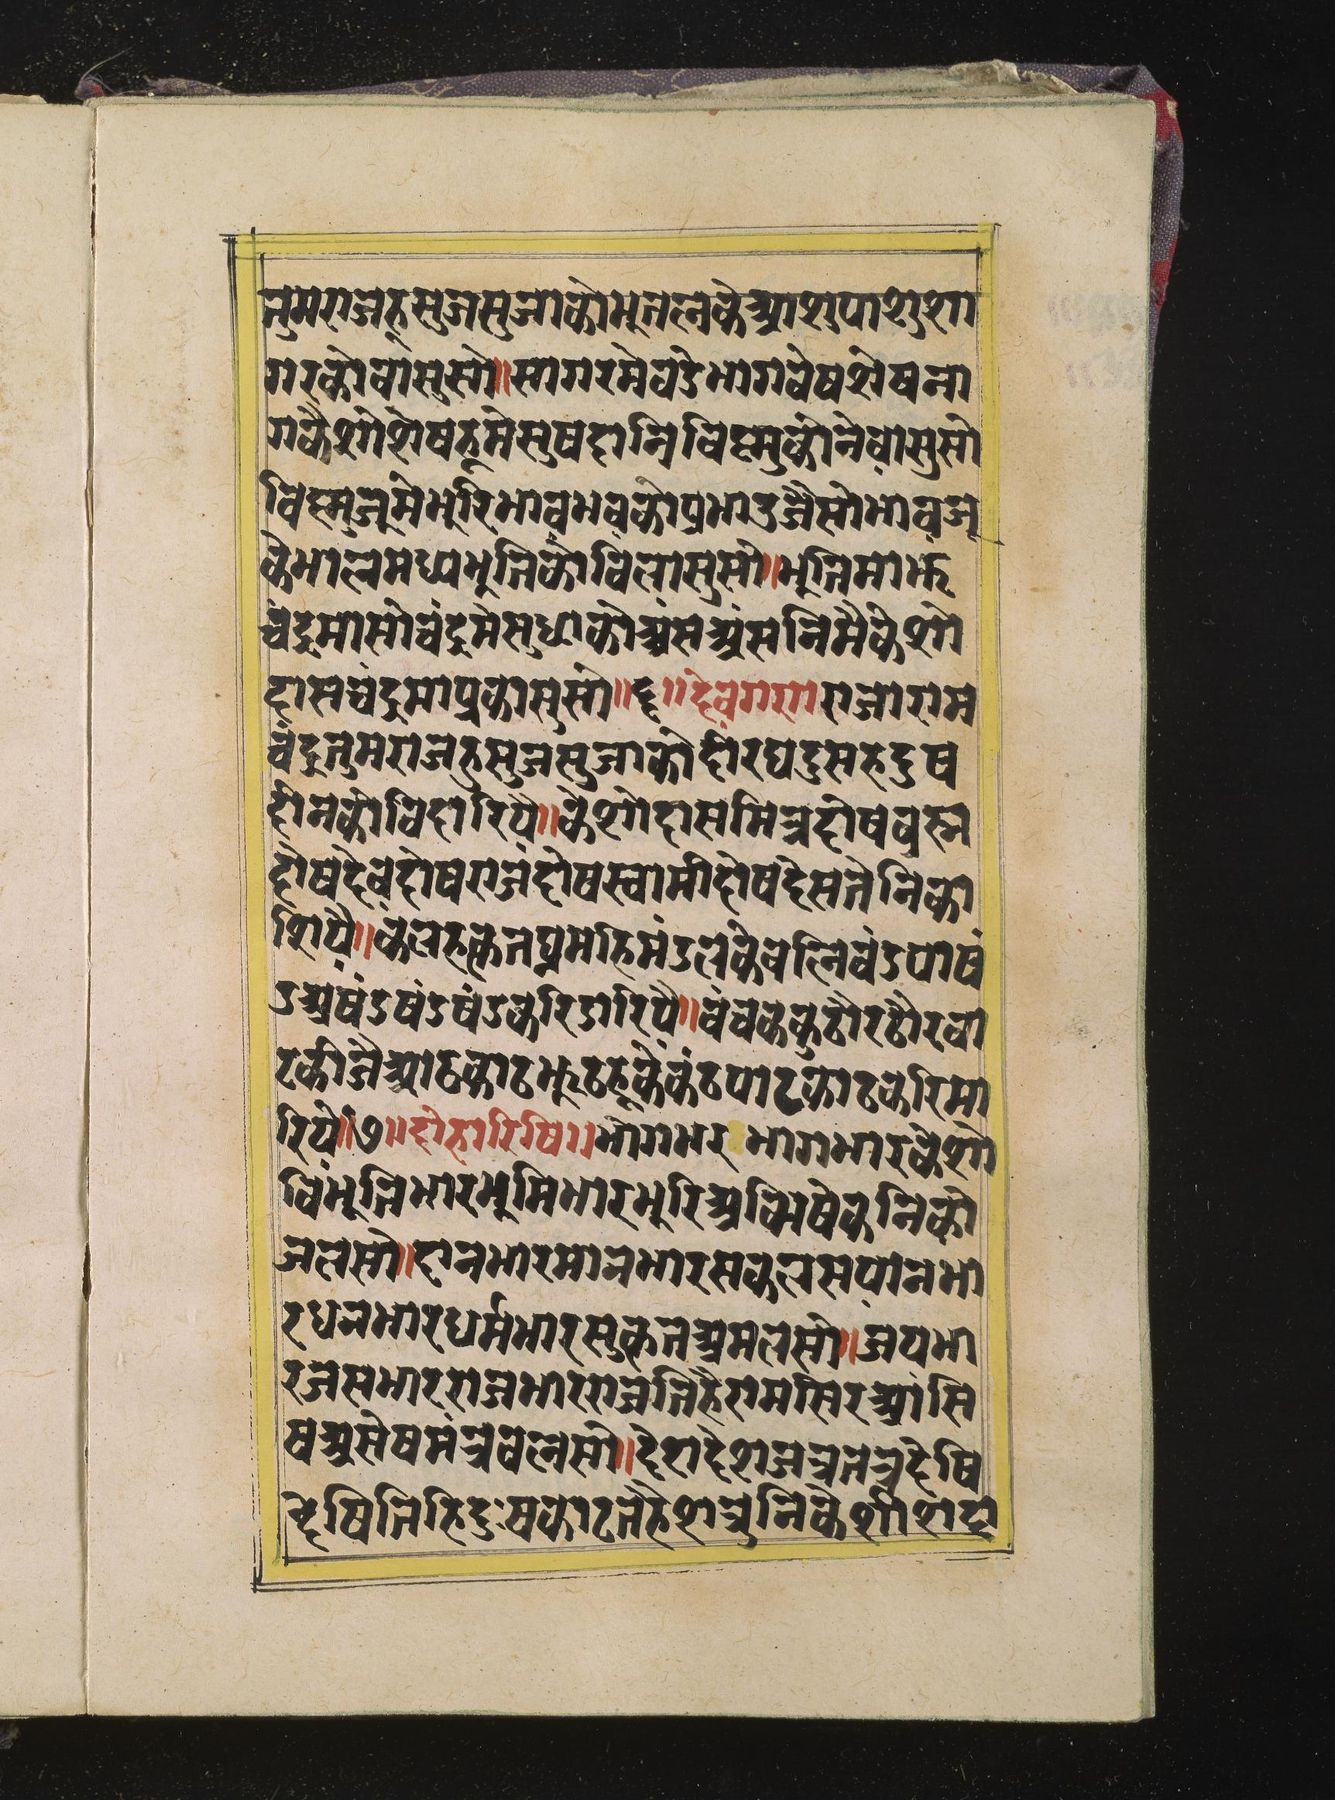 तुमराजहुसुजसुजाकोभूतलकेआशुपाशुशा
गरकोवासुसो॥सागरमैवडेभागवेषशेषना
गकैशोशेषहूमेसुषदानिविष्मुकोनेवासुसो
विष्मुजूमेभूरिभावभवकोप्रभाउजैसोभावजू
केभालमध्यभूतिकोविलासुसो॥भूतिमाझ
चंद्रमासोचंद्रमेसुधाकोअंसअंसनिमैकेशो
दासचंद्रमाप्रकासुसो॥६॥देवगणराजाराम
चंद्रतुमराजहुसुजसुजाकोदीरघदुसहदुष
दीनकोविदारियै॥केशोदासमित्रदोषब्रह्म
दोषदेवदोषराजदोषस्वामीदोषदेसतेनिका
शियै॥कलहकृतघ्नमहिमंडलकेबलिवंडपाषं
डअषंडषंडषंडकरिडारियै॥वंचककठोरठौरवा
टकीजैआठकाठझूठहूकैकंठपाटकाटकरिमा
रियै॥७॥दोहारिषि॥भोगभर भागभारकेशो
विंभूतिभारभूमिभारभूरिअभिषेकनिको
जलसो॥दानभारमानभारसकलसयानभा
रधनभारधर्मभारसुकृतअमलसो॥जयभा
रजसभारराजभारराजतिहैरामसिरआसि
षअसेषमंत्रवलसो॥देशदेशजत्रतत्रदेषि
देषितिहिदुःषकाटतहैशत्रुनिकेशीशदा